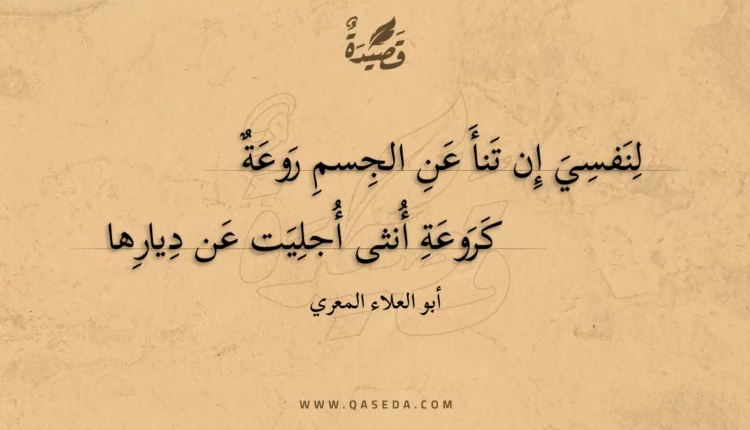 قَصِيدَةٌ
لِنَفسِيَ إِن تَنأَ عَنِ الجِسمِ رَوعَةٌ
كَرَوعَةِ أُنثى أُجلِيَت عَن دِيارِها
أبو العلاء المعري
WWW.QASEDA.COM